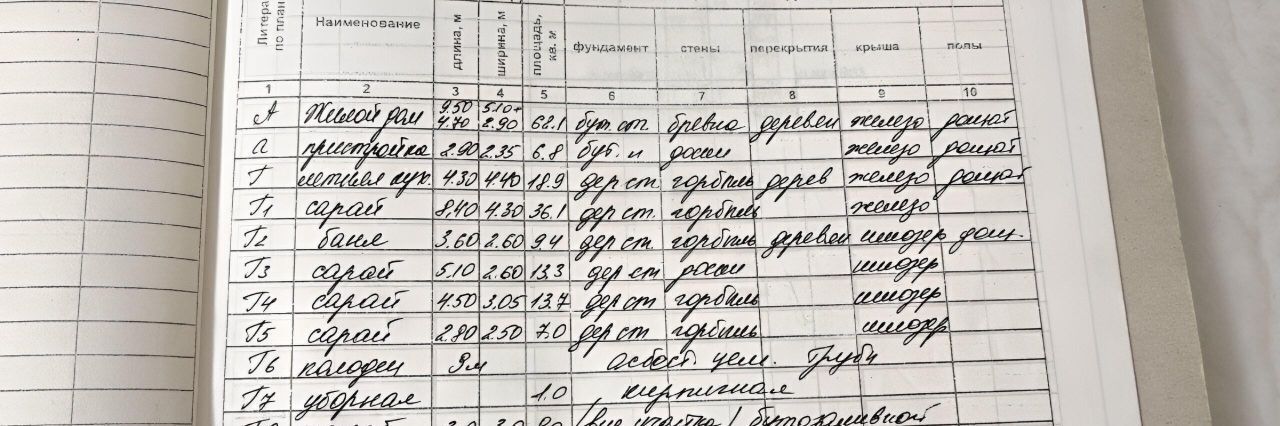 Литера по план Наименование длина, м ширина, м площадь, кв. м фундамент стены перекрытия крыша полы
1 2 3 4 5 6 7 8 9 10
А Жилой дом 9.50 5.10+
4.70 2.90 62.1 бут. ст. бревна деревен железо дощат
а пристройка 2.90 2.35 6.8 бут. л доски железо дощат
Г летняя кух. 4.30 4.40 18.9 дер ст. горбыль дерев железо дощат
Г1 сарай 8.40 4.30 36.1 дер ст. горбыль железо
Г2 баня 3.60 2.60 9.4 дер ст. горбыль деревен шифер дощ.
Г3 сарай 5.10 2.60 13.3 дер ст доски шифер
Г4 сарай 4.50 3.05 13.7 дер ст горбыль шифер
Г5 сарай 2.80 2.50 7.0 дер ст горбыль шифер
Г6 колодец 9м асбест. цем. трубы
Г7 уборная 1.0 кирпичная
/вне участка/ бутозаливной